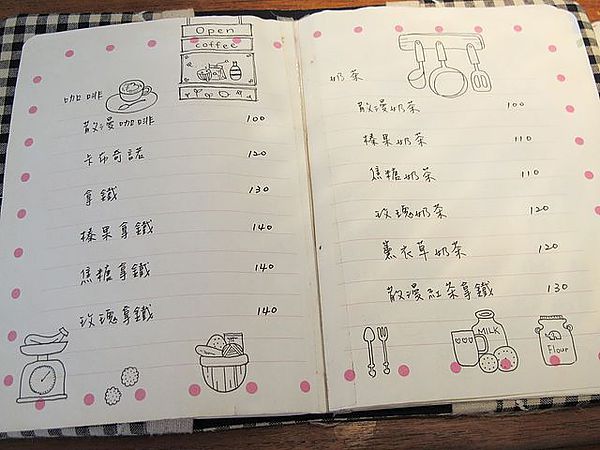 Open
coffee
咖啡
散漫咖啡 100
卡布奇諾 120
拿鐵 130
榛果拿鐵 140
焦糖拿鐵 140
玫瑰拿鐵 140
奶茶
散漫奶茶 100
榛果奶茶 110
焦糖奶茶 110
玫瑰奶茶 120
薰衣草奶茶 120
散漫紅茶拿鐵 130
MILK
Flour